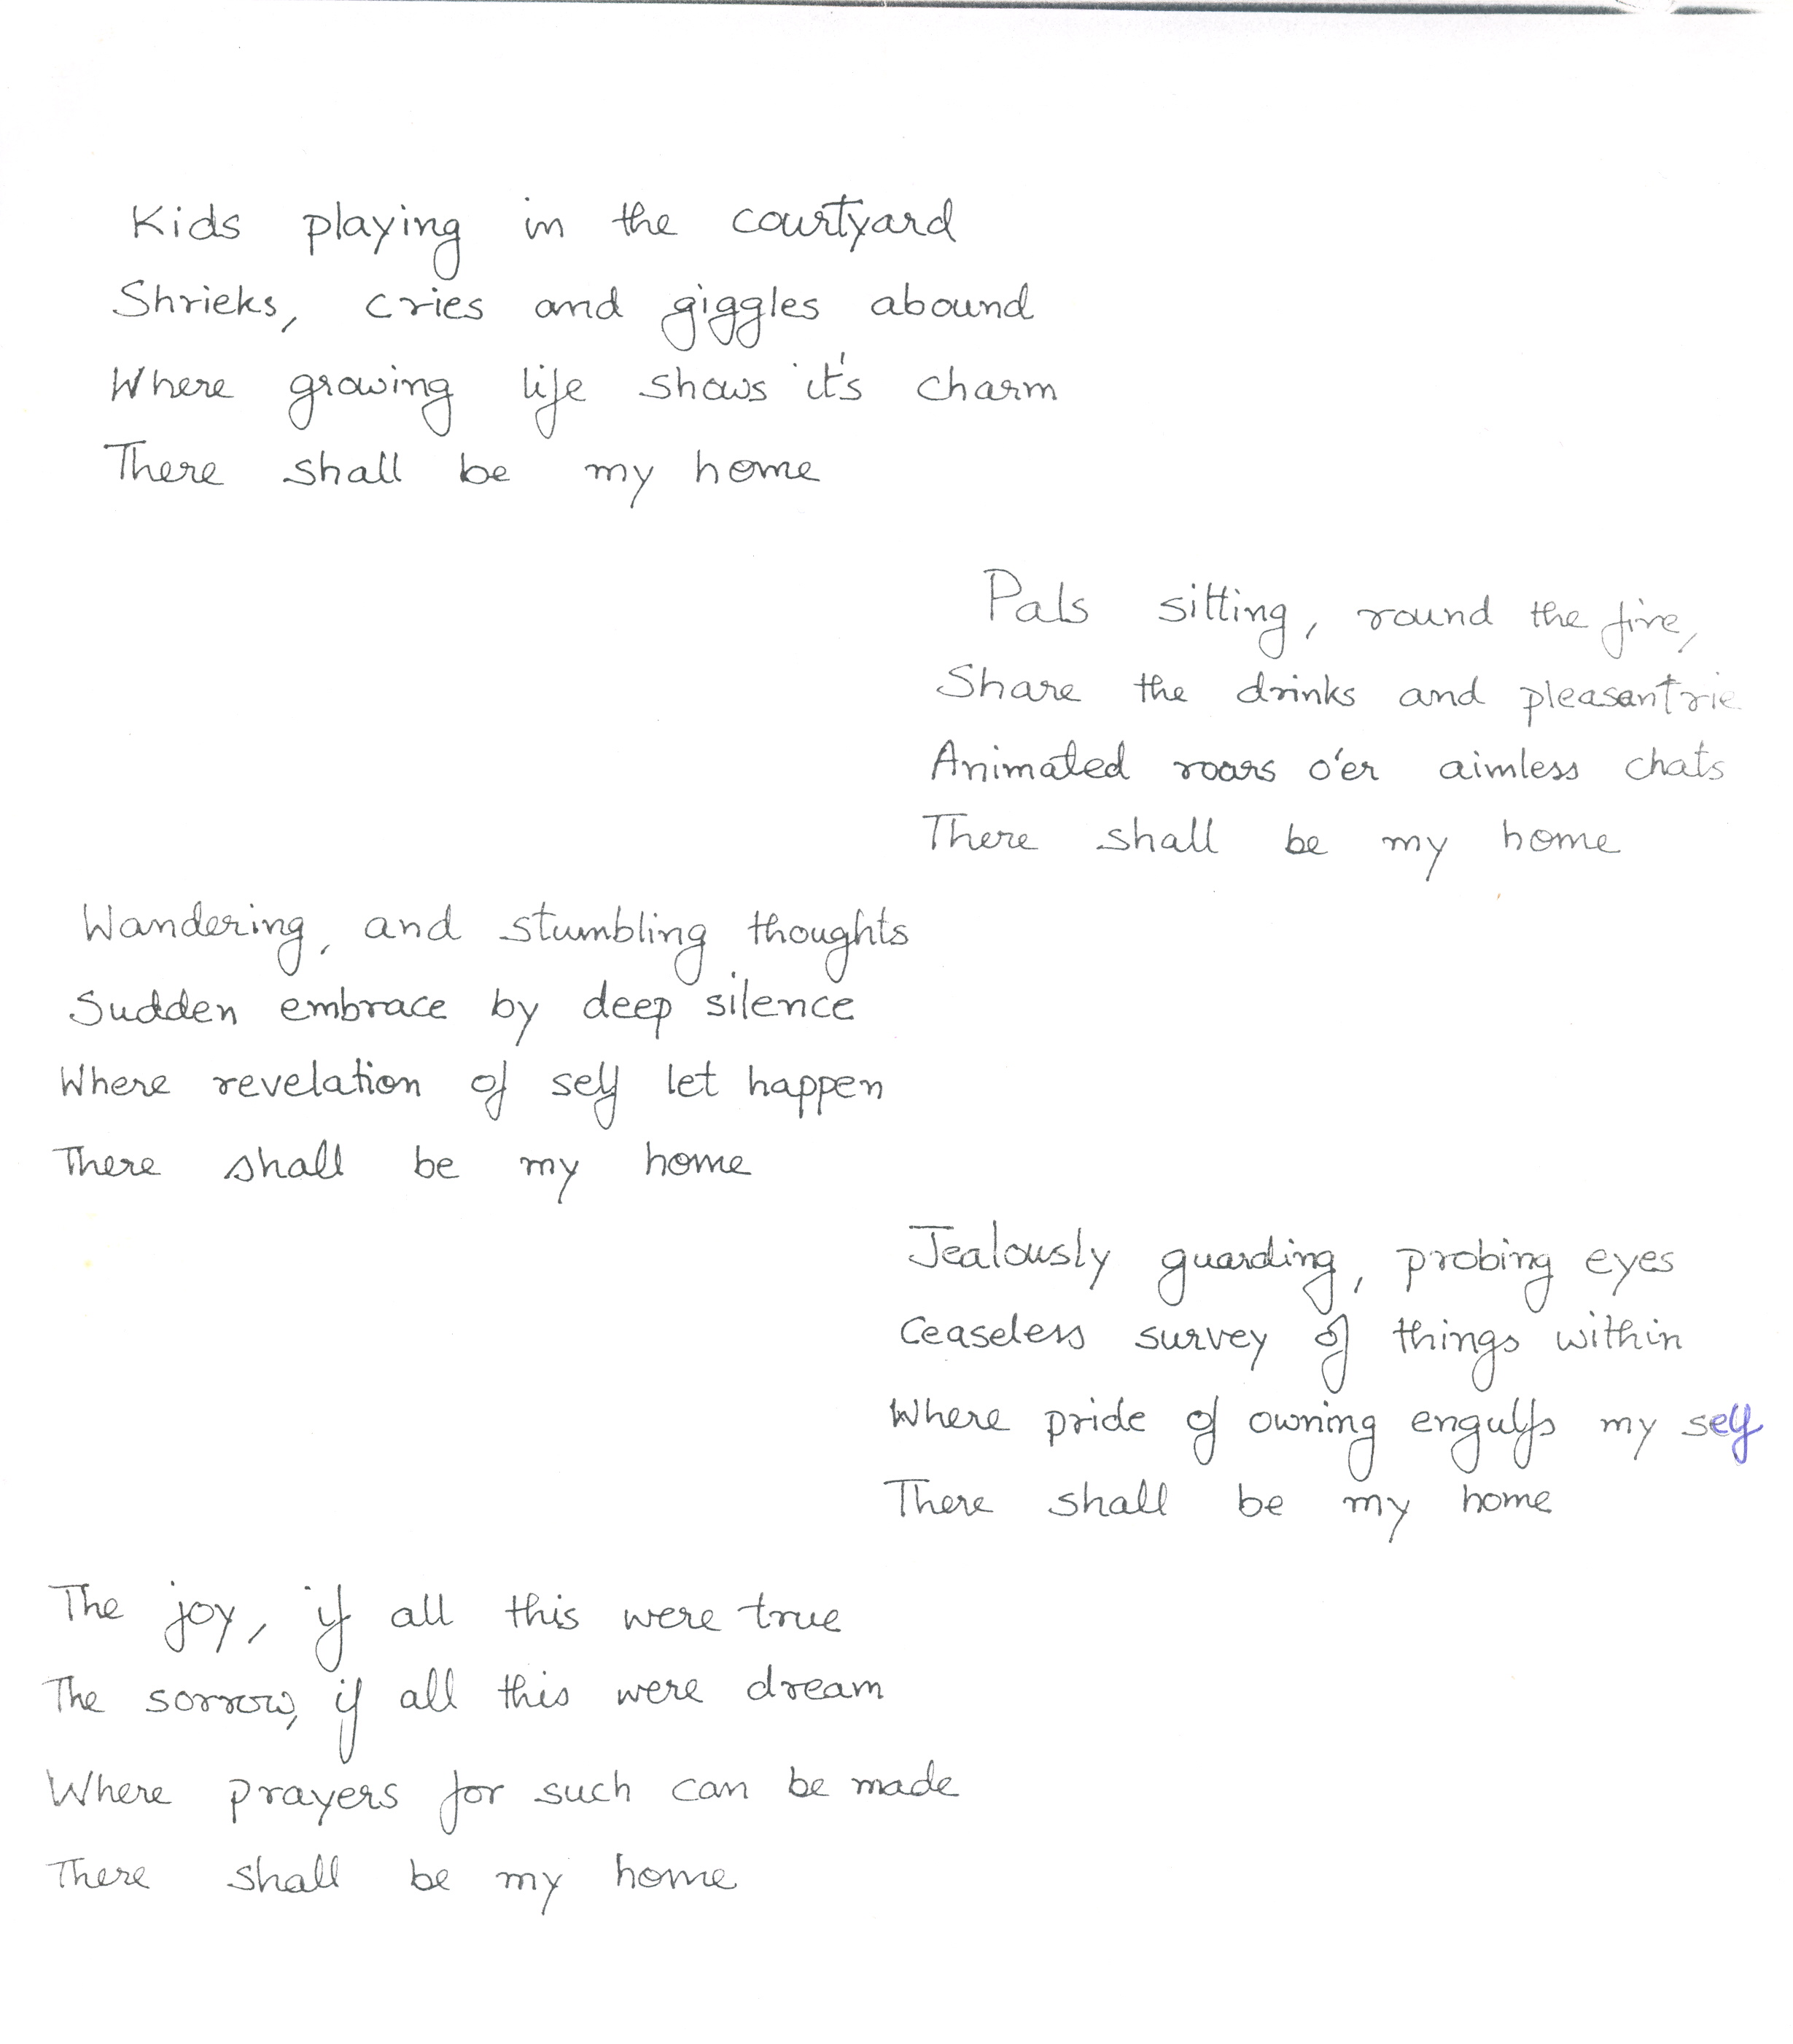 Kids playing in the courtyard
Shrieks, cries and giggles abound
Where growing life shows it's charm
There shall be my home
Pals sitting, round the fire,
Share the drinks and pleasantrie
Animated roars o'er aimless chats
There shall be my home
Wandering, and stumbling thoughts
Sudden embrace by deep silence
Where revelation of self let happen
There shall be my home
Jealously guarding, probing eyes
Ceaseless survey of things within
Where pride of owning engulfs my self
There shall be my home
The joy, if all this were true
The sorrow, if all this were dream
Where prayers for such can be made
There shall be my home